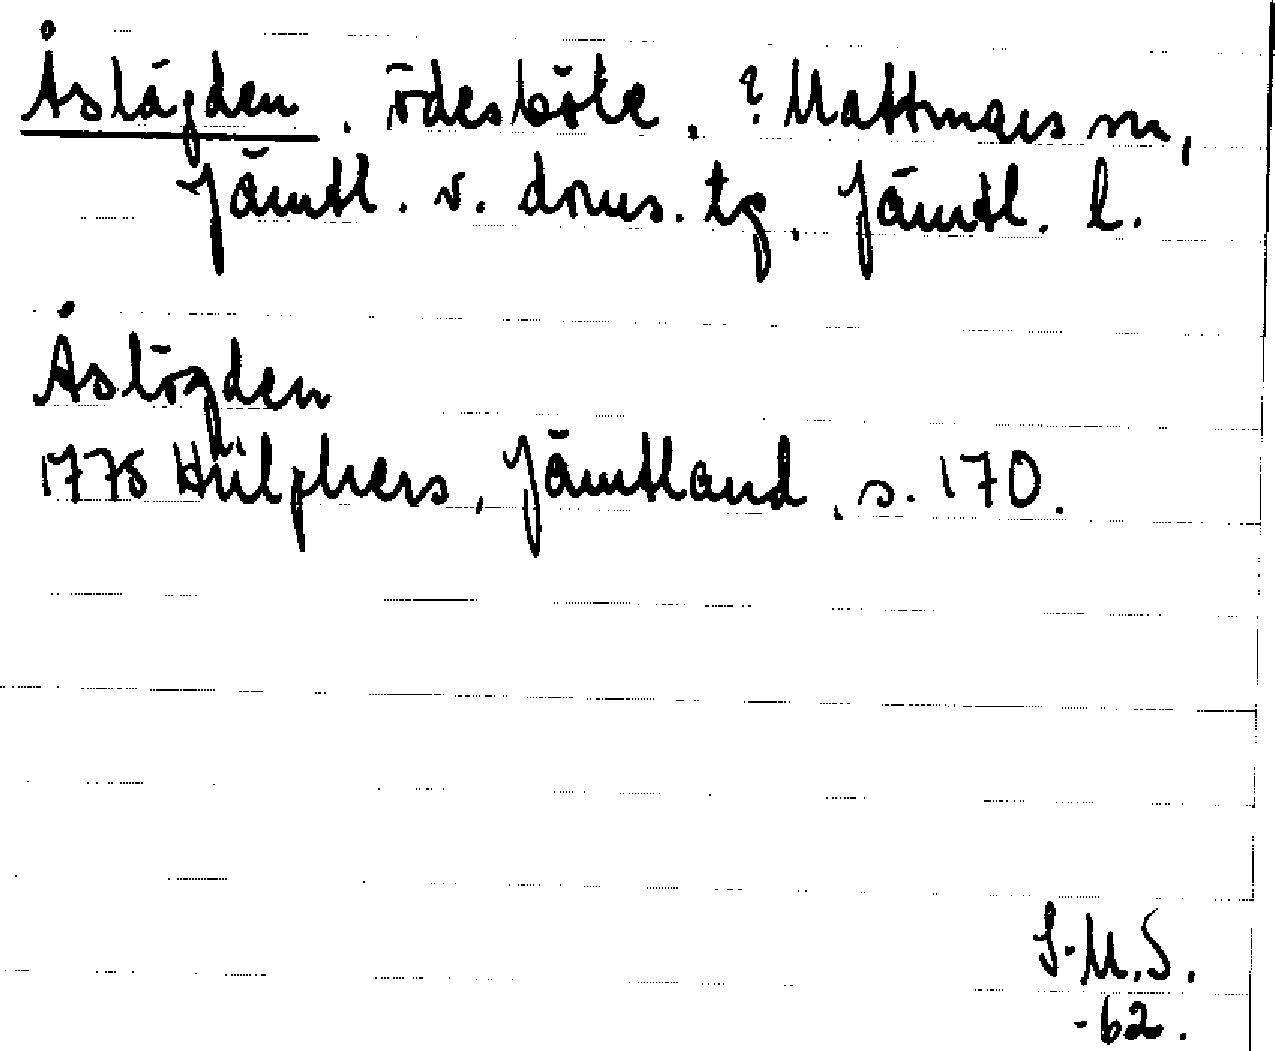 Åslägden, ödesböle, ? Mattmars sn,
Jämtl. v. doms. tg, Jämtl. l.
Åslögden
1775 Hülphers, Jämtland, s. 170.
S-M.S.
-62.